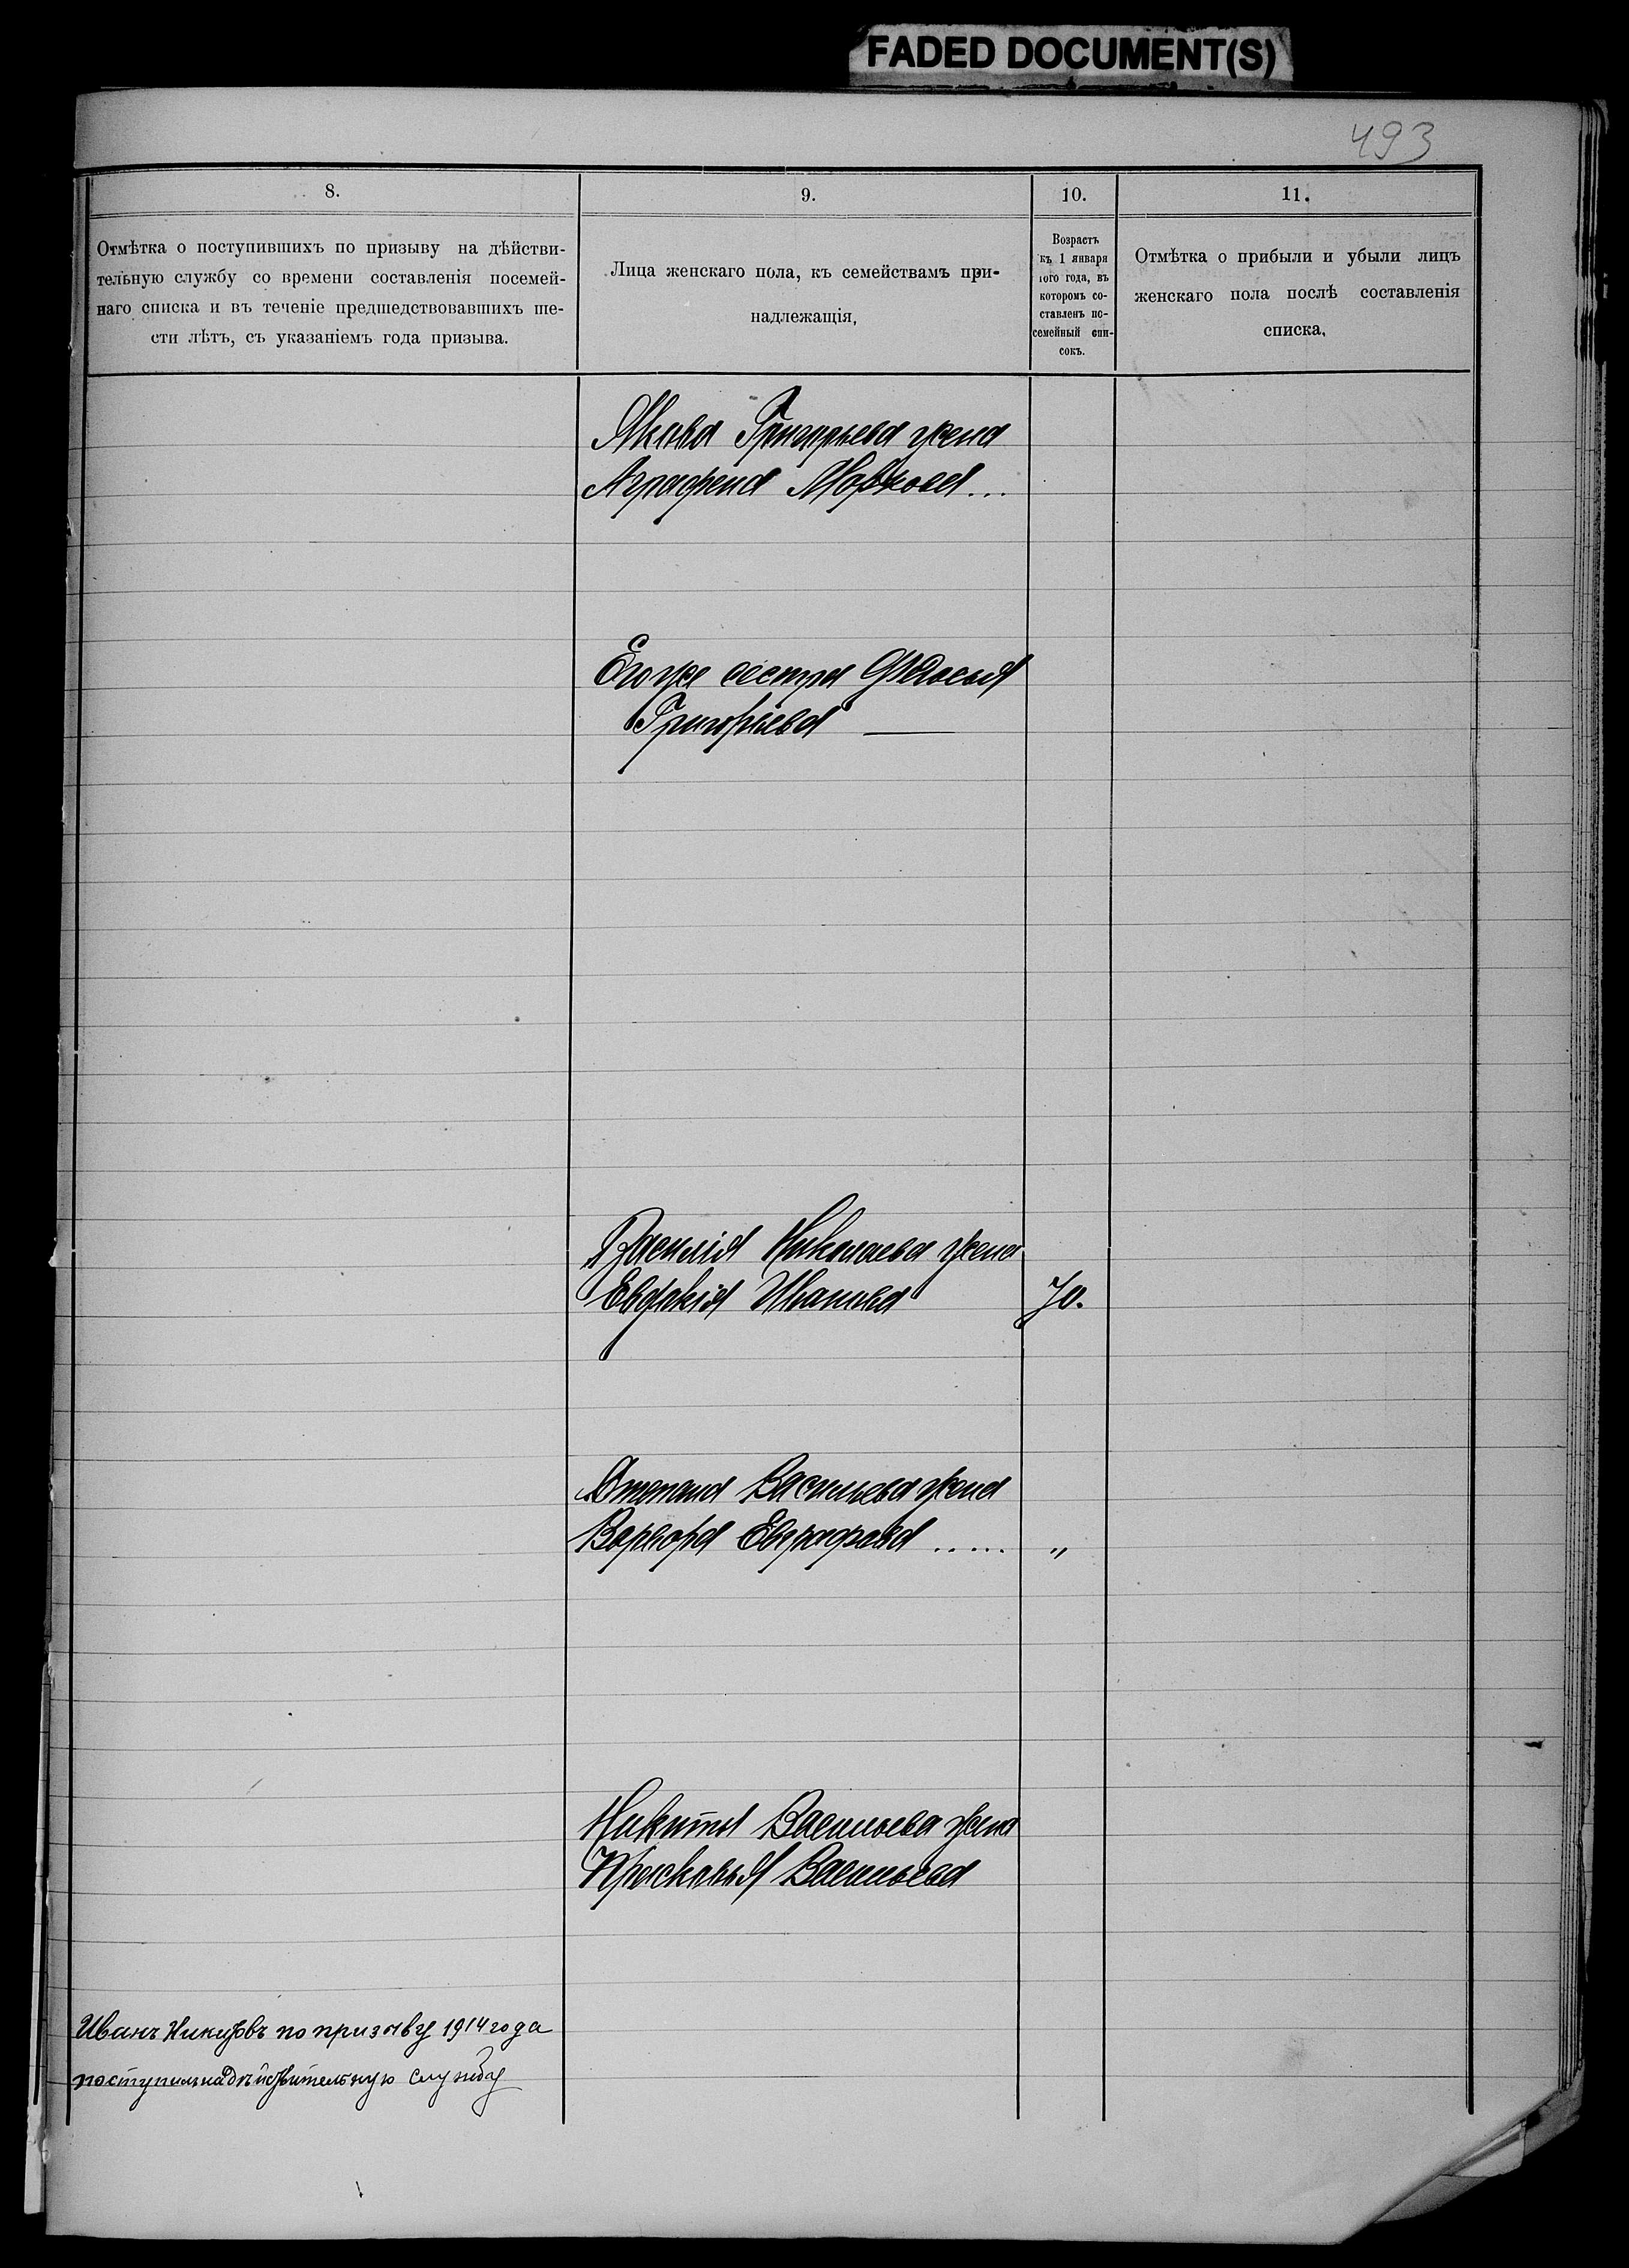 FADED DOCUMENT(S)
493
8.
Отмѣтка о поступившихъ по призыву на дѣйстви-
тельную службу со времени составленія посемей-
наго списка и въ теченіе предшедствовавшихъ ше-
сти лѣтъ, съ указаніемъ года призыва.
9.
Лица женскаго пола, къ семействамъ при-
надлежащія,
10.
Возрастъ
къ 1 января
того года, въ
которомъ со-
ставленъ по-
семейный спи-
сокъ.
11.
Отмѣтка о прибыли и убыли лицъ
женскаго пола послѣ составленія
списка.
Якова Григорьева жена
Аграфена Маркова...
Егоже сестра Федосья
Григорьева —
Василія Николаева жена
Евдокія Иванова 70.
Степана Васильева жена
Варвара Евграфова ..... „
Никиты Васильева жена
Прасковья Васильева
Иванъ Никитовъ по призыву 1914 года
поступилъ на дѣйствительную службу